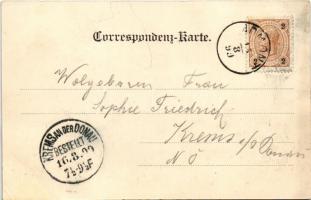 Correspondenz-Karte.
2
2
Wolgeboren Frau
Sophie Friedrich
Krems a/d Donau
N Ö
KREMS AN DER DONAU
BESTELLT
16.8.99
7½-9½F